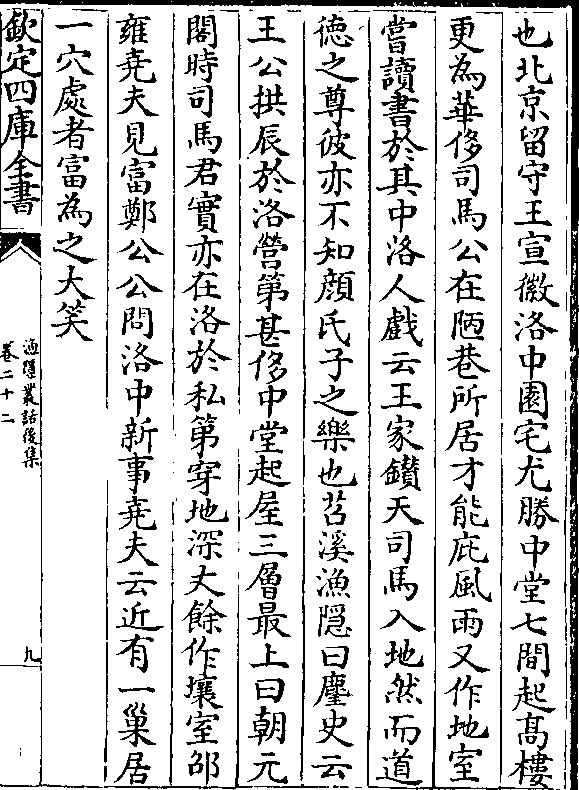 也北京留守王宣徽洛中園宅尤勝中堂七間起髙樓
更為華侈司馬公在陋巷所居才能庇風雨又作地室
嘗讀書於其中洛人戲云王家鑚天司馬入地然而道
徳之尊彼亦不知顔氏子之樂也苕溪漁隠曰麈史云
王公拱辰於洛營第甚侈中堂起屋三層最上曰朝元
閣時司馬君實亦在洛於私第穿地深丈餘作壤室邵
雍尭夫見富鄭公公問洛中新事尭夫云近有一巢居
一穴處者富為之大笑
欽定四庫全書
漁隠叢話後集
卷二十二
九